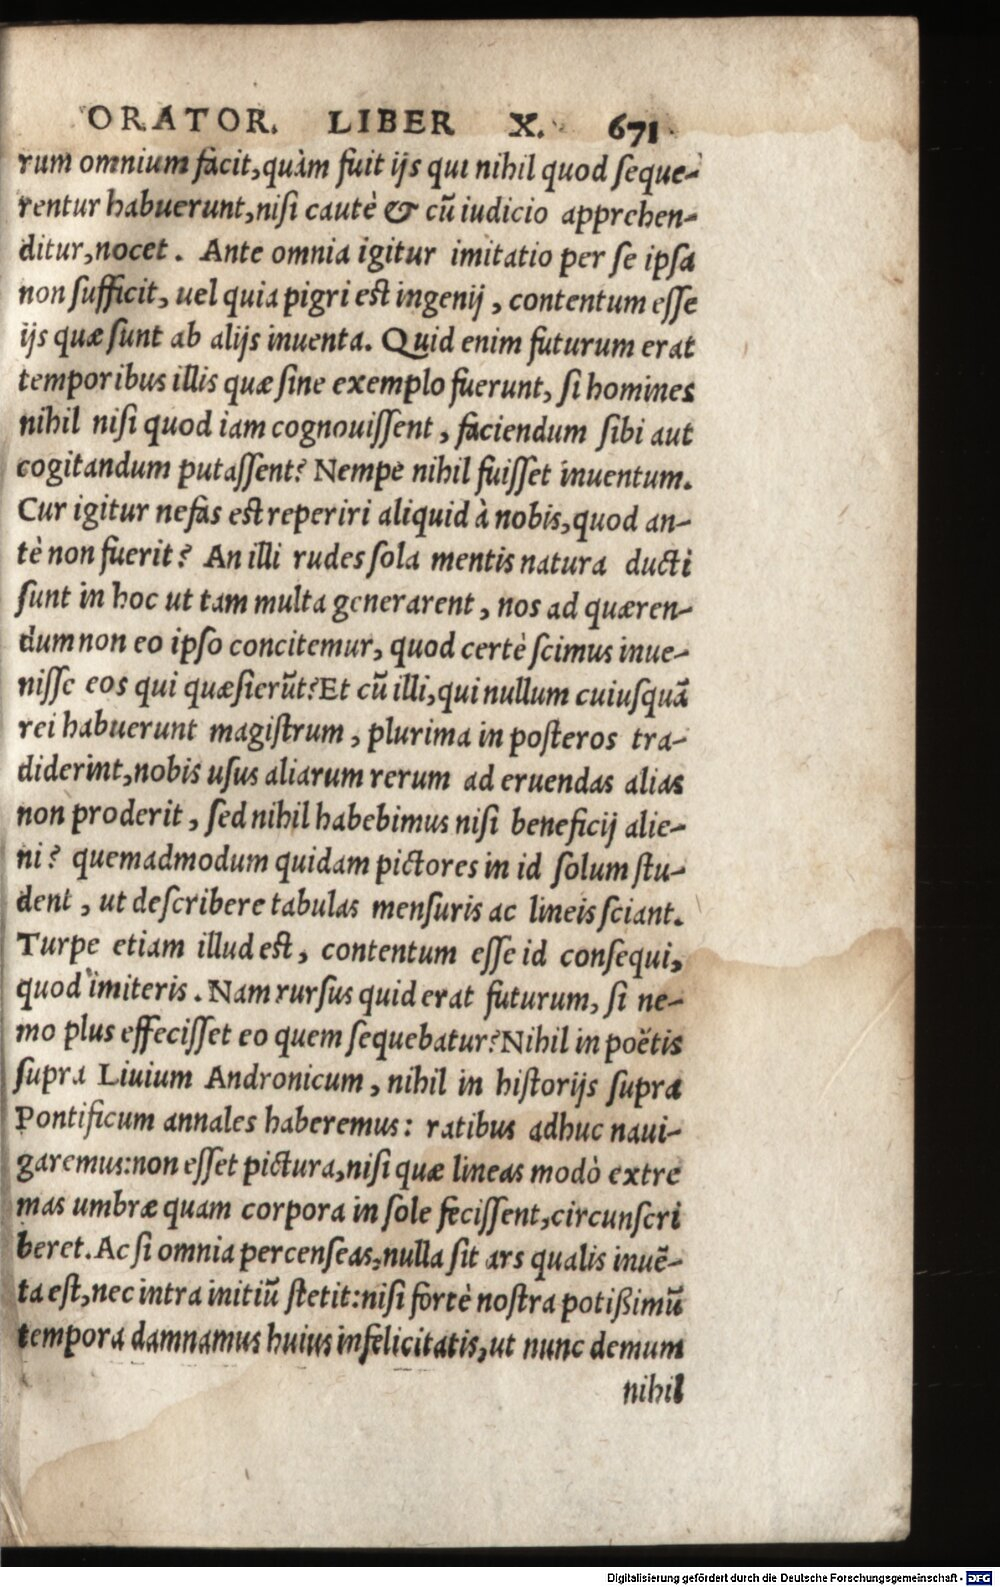 ORATOR. LIBER X. 671
rum omnium facit, quàm fuit ijs qui nihil quod seque-
rentur habuerunt, nisi cautè & cū iudicio apprehen-
ditur, nocet. Ante omnia igitur imitatio per se ipsa
non sufficit, uel quia pigri est ingenij, contentum esse
ijs quæ sunt ab alijs inuenta. Quid enim futurum erat
temporibus illis quæ sine exemplo fuerunt, si homines
nihil nisi quod iam cognouissent, faciendum sibi aut
cogitandum putassent? Nempe nihil fuisset inuentum.
Cur igitur nefas est reperiri aliquid à nobis, quod an-
tè non fuerit? An illi rudes sola mentis natura ducti
sunt in hoc ut tam multa generarent, nos ad quæren-
dum non eo ipso concitemur, quod certè scimus inue-
nisse eos qui quæsierūt? Et cū illi, qui nullum cuiusquā
rei habuerunt magistrum, plurima in posteros tra-
diderint, nobis usus aliarum rerum ad eruendas alias
non proderit, sed nihil habebimus nisi beneficij alie-
ni? quemadmodum quidam pictores in id solum stu-
dent, ut describere tabulas mensuris ac lineis sciant.
Turpe etiam illud est, contentum esse id consequi,
quod imiteris. Nam rursus quid erat futurum, si ne-
mo plus effecisset eo quem sequebatur? Nihil in poëtis
supra Liuium Andronicum, nihil in historijs supra
Pontificum annales haberemus: ratibus adhuc naui-
garemus: non esset pictura, nisi quæ lineas modò extre
mas umbræ quam corpora in sole fecissent, circunscri
beret. Ac si omnia percenseas, nulla sit ars qualis inuē-
ta est, nec intra initiū stetit: nisi fortè nostra potißimū
tempora damnamus huius infelicitatis, ut nunc demum
nihil
Digitalisierung gefördert durch die Deutsche Forschungsgemeinschaft - DFG